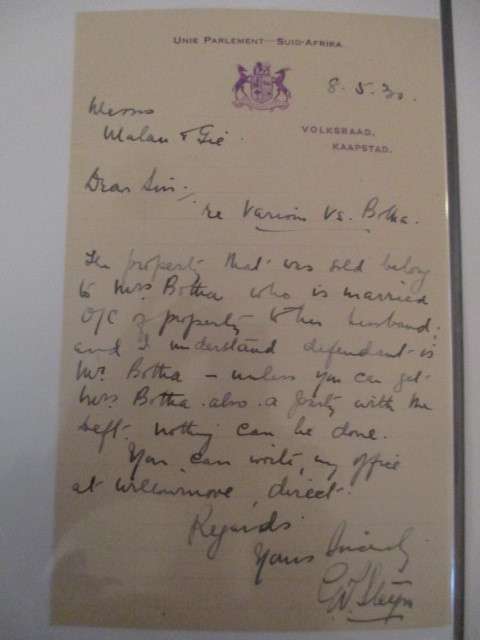 UNIE PARLEMENT—SUID-AFRIKA
8.5.30.
VOLKSRAAD,
KAAPSTAD.
Messrs
Malan & Gie.
Dear Sirs.
re Various vs. Botha.
The property that was sold belong
to Mrs. Botha who is married
O/C of property to her husband.
and I understand defendant is
Mr. Botha — unless you can get
Mrs. Botha also a party with the
Deft. nothing can be done.
You can write, my office
at direct.
Regards
Yours Sincerely